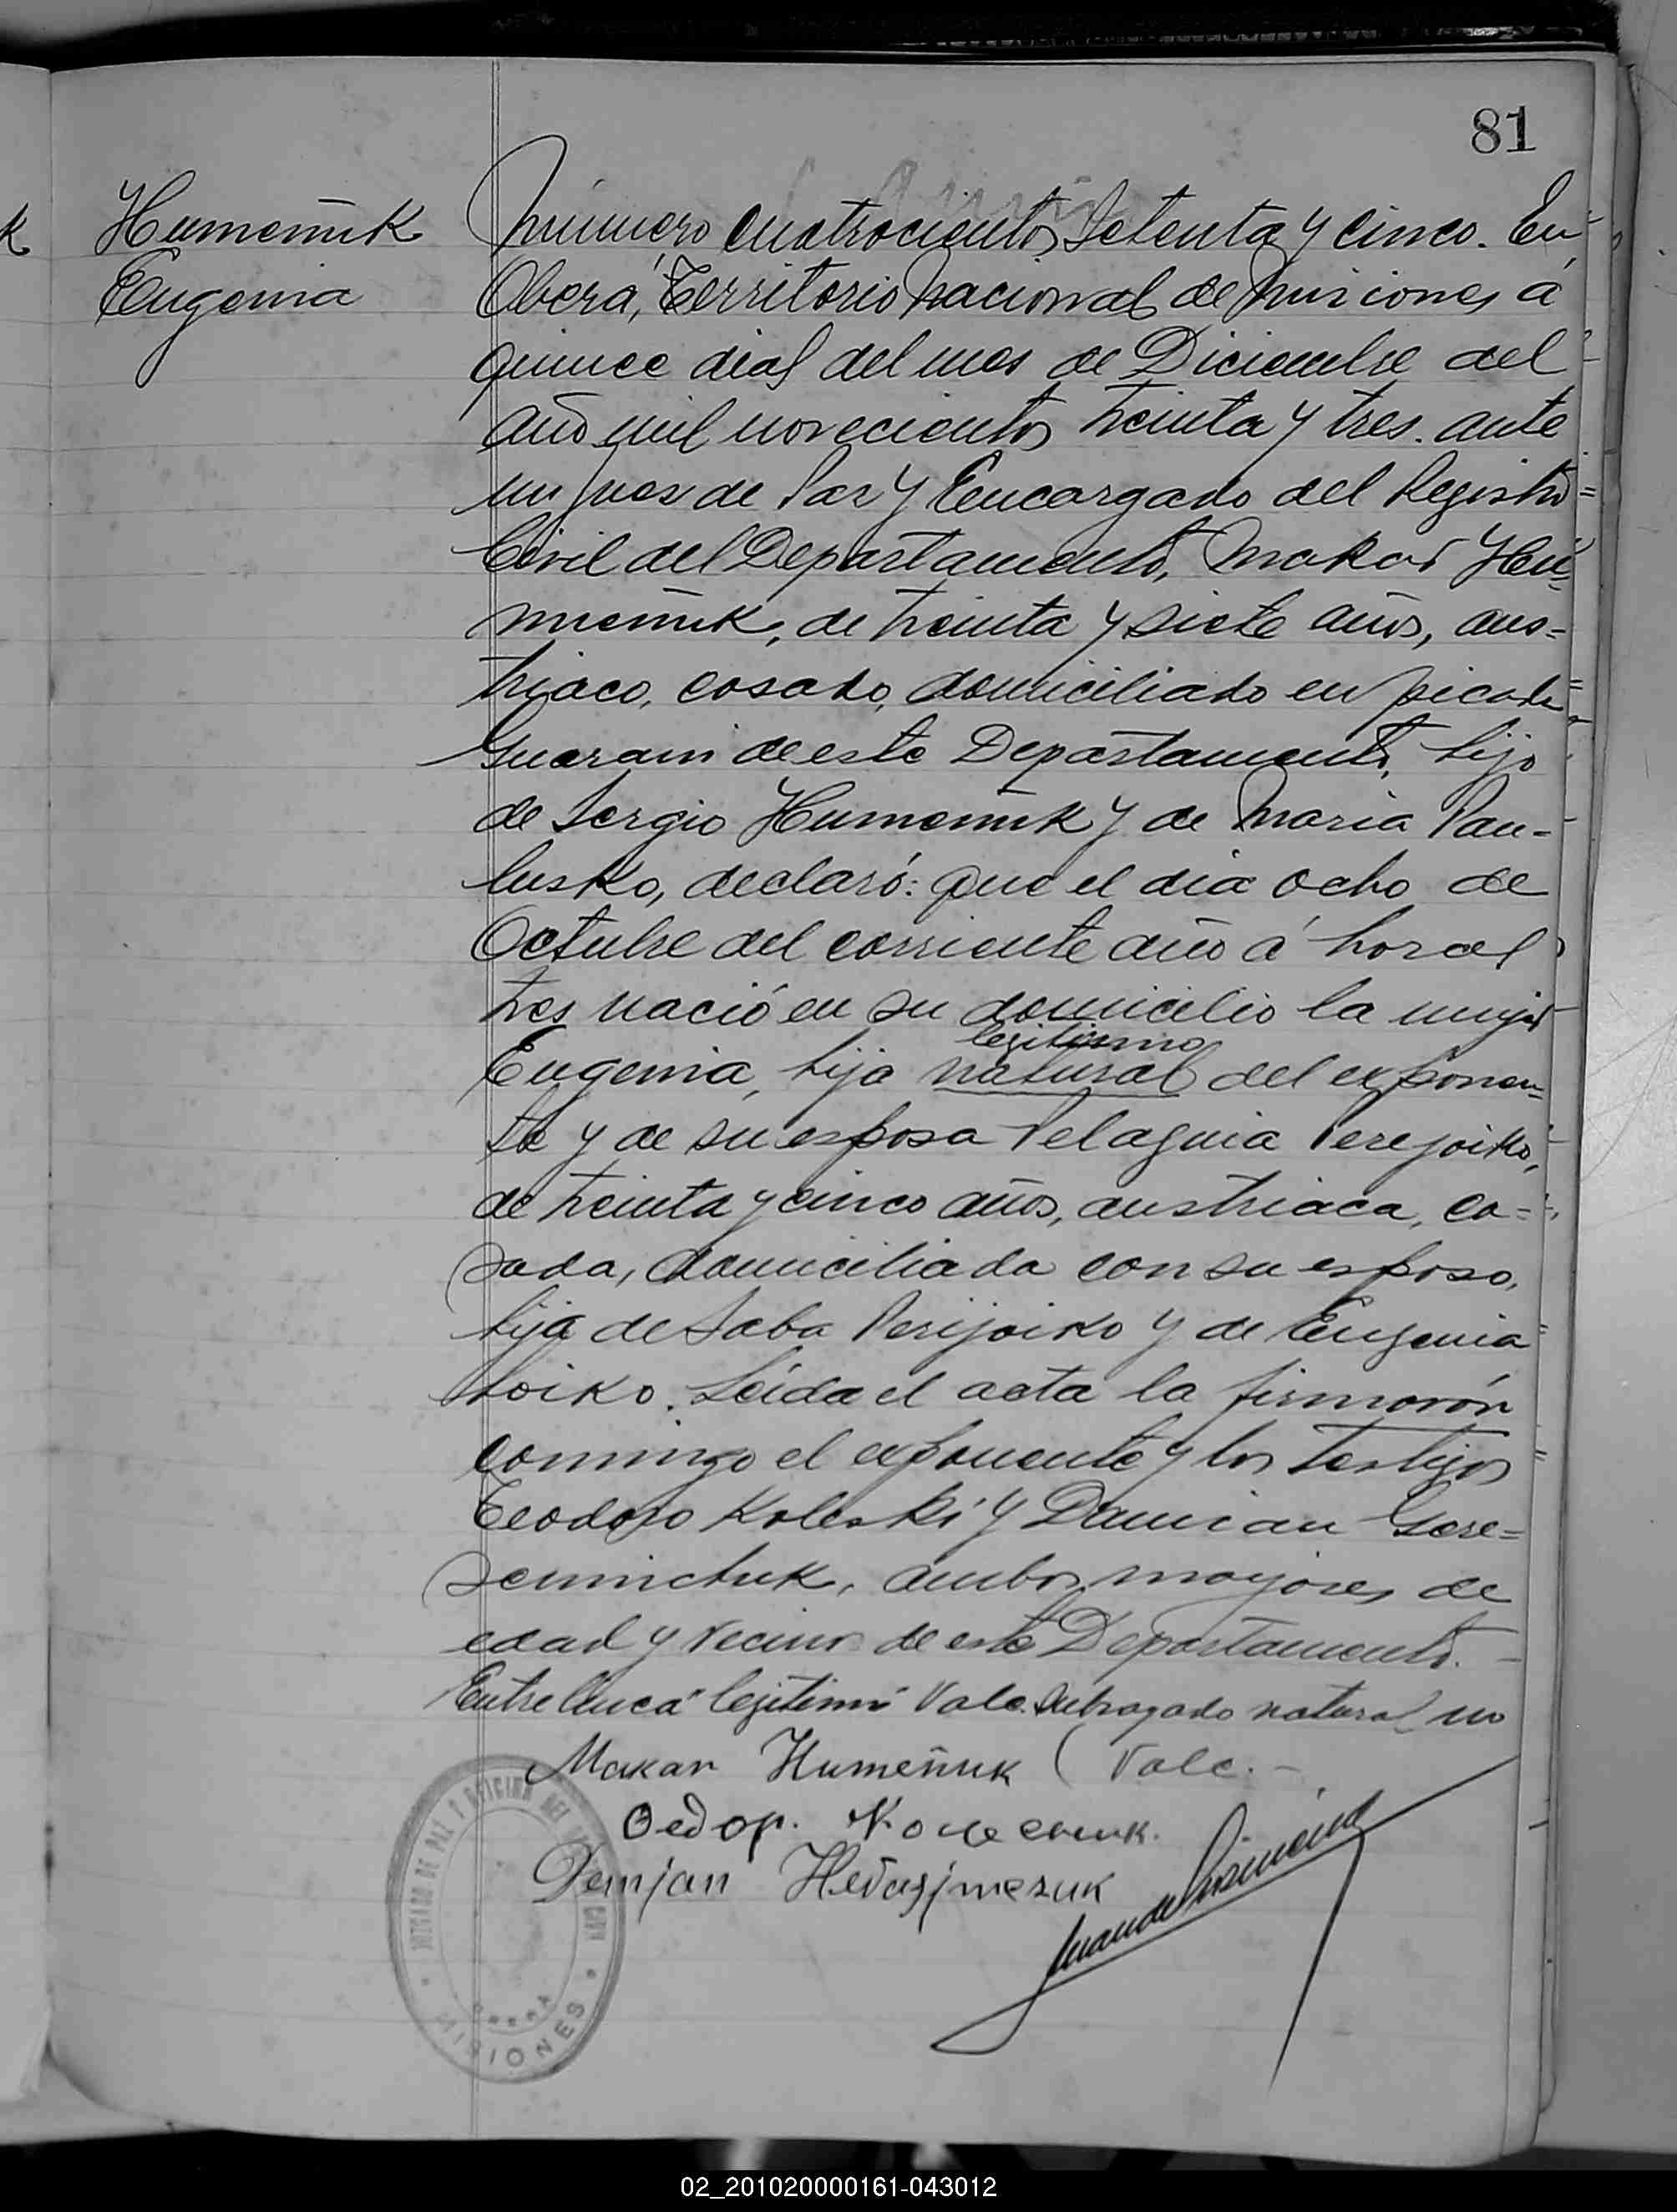 81
Humeñuk
Eugenia
Número cuatrocientos setenta y cinco. En
Oberá, Territorio Nacional de Misiones á
quince dias del mes de Diciembre del
año mil novecientos treinta y tres. ante
mi Juez de Paz y Encargado del Registro
Civil del Departamento, Makar Hu=
meñuk, de treinta y siete años, aus=
triaco, casado, domiciliado en picada
Guarani de este Departamento, hijo
de Sergio Humeñuk y de Maria Pau-
lusko, declaró: que el dia ocho de
Octubre del corriente año á horas
tres nació en su domicilio la mujer
legitima
Eugenia, hija natural del exponen=
te y de su esposa Pelaguia Perejoiko,
de treinta y cinco años, austriaca, ca=
sada, domiciliada con su esposo,
hija de Saba Perijoiko y de Eugenia
Loiko. Leida el acta la firmarón
conmigo el exponente y los testigos
Teodoro Koleski y Damian Gere=
semichuk, ambos mayores de
edad y vecinos de este Departamento.
Entre linea "legitima" Vale. Subrayado natural no
Makar Humeñuk ( Vale.-
Федор
Demjan
JUZGADO DE PAZ Y OFICINA DEL CIVIL
OBERA
MISIONES
02_201020000161-043012